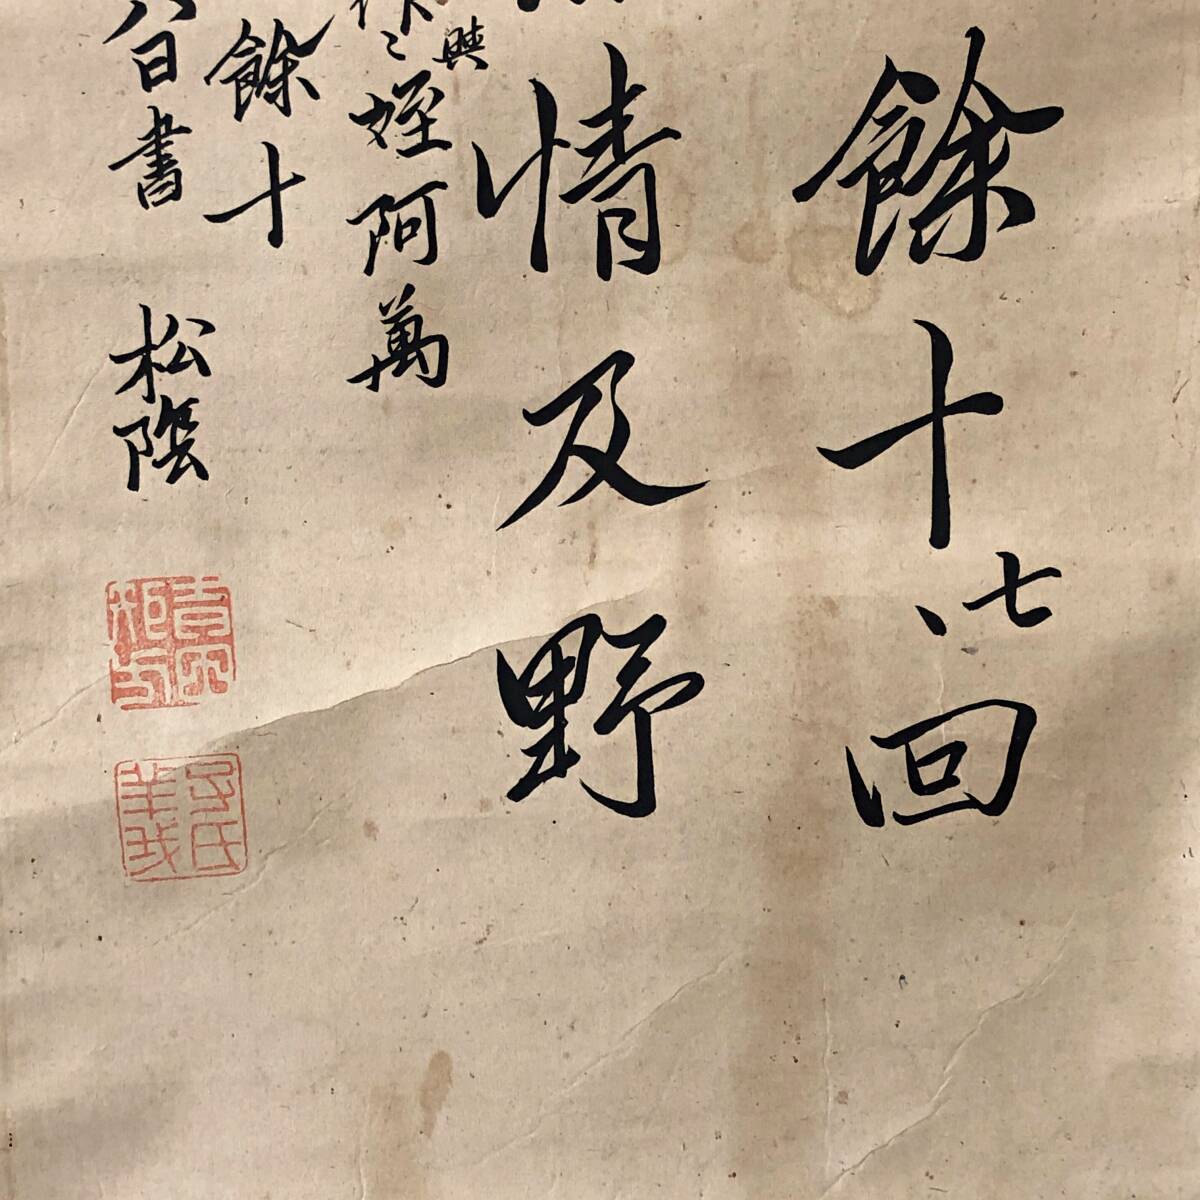 餘十七回
情及野
與
姪阿萬
餘十
八日書 松陰
子氏